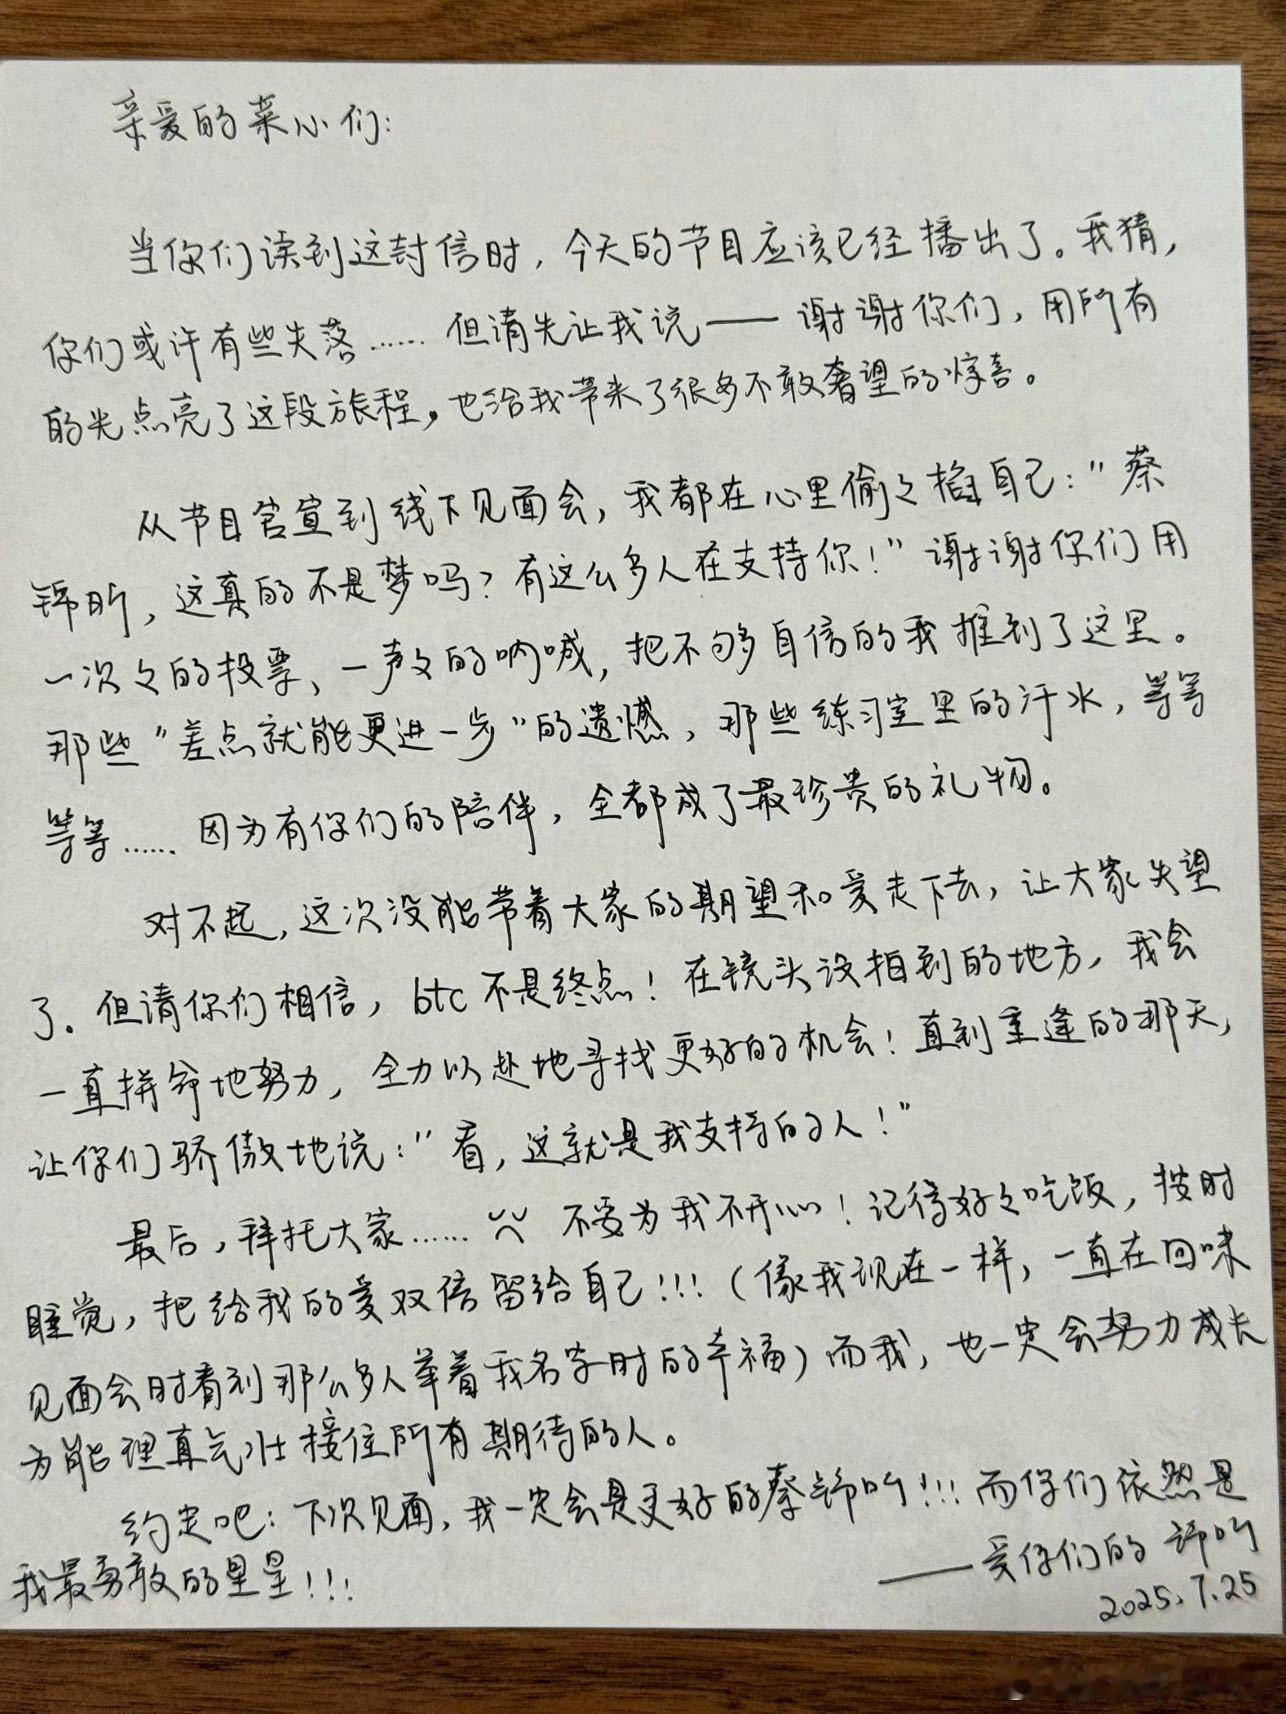 亲爱的菜心们：
当你们读到这封信时，今天的节目应该已经播出了。我猜，
你们或许有些失落……但请先让我说——谢谢你们，用所有
的光点亮了这段旅程，也给我带来了很多不敢奢望的惊喜。
从节目官宣到线下见面会，我都在心里偷々掐自己："蔡
锦昕，这真的不是梦吗？有这么多人在支持你！"谢谢你们用
一次々的投票、一声々的呐喊，把不够自信的我推到了这里。
那些"差点就能更进一步"的遗憾，那些练习室里的汗水，等等
等等……因为有你们的陪伴，全都成了最珍贵的礼物。
对不起，这次没能带着大家的期望和爱走下去，让大家失望
了。但请你们相信，btc不是终点！在镜头没拍到的地方，我会
一直拼命地努力，全力以赴地寻找更好的机会！直到重逢的那天，
让你们骄傲地说："看，这就是我支持的人！"
最后，拜托大家……不要为我不开心！记得好々吃饭，按时
睡觉，把给我的爱双倍留给自己!!!（像我现在一样，一直在回味
见面会时看到那么多人举着我名字时的幸福）而我，也一定会努力成长
为能理直气壮接住所有期待的人。
约定吧：下次见面，我一定会是更好的蔡锦昕!!!而你们依然是
我最勇敢的星星!!!
——爱你们的锦昕
2025.7.25